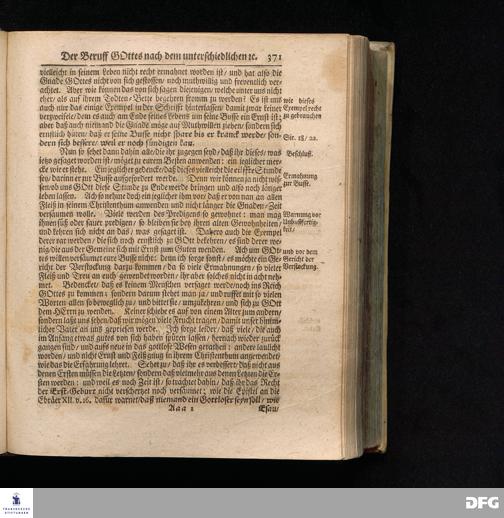 Der Beruff GOttes nach dem unterschiedlichen ꝛc. 371
vielleicht in seinem Leben nicht recht ermahnet worden ist/ und hat also die
Gnade GOttes nicht von sich gestossen/ noch muthwillig und freventlich ver-
achtet. Aber wie können das von sich sagen diejenigen/ welche unter uns nicht
eher/ als auf ihrem Todten-Bette begehren fromm zu werden? Es ist uns
auch nur das einige Exempel in der Schrifft hinterlassen/ damit zwar keiner
verzweifele/ dem es auch am Ende seines Lebens um seine Busse ein Ernst ist;
aber daß auch niemand die Gnade möge auf Muthwillen ziehen/ sondern sich
ernstlich hüten/ daß er seine Busse nicht spare bis er kranck werde/ son-
dern sich bessere/ weil er noch sündigen kan.
wie dieses
Exempel recht
zu gebrauchen
Sir. 18/ 22.
Nun so sehet dann dahin alle/ die ihr zugegen seyd/ daß ihr dieses/ was
jetzo gesaget worden ist/ möget zu eurem Besten anwenden: ein jeglicher mer-
cke wie er stehe. Ein jeglicher gedencke/ daß dieses vielleicht die eilffte Stunde
sey/ darinn er zur Busse aufgefordert werde. Denn wir können ja nicht wis-
sen/ ob uns GOtt diese Stunde zu Ende werde bringen und also noch länger
leben lassen. Ach so nehme doch ein jeglicher ihm vor/ daß er von nun an allen
Fleiß in seinem Christenthum anwenden und nicht länger die Gnaden-Zeit
versäumen wolle. Viele werden des Predigens so gewohnet: man mag
ihnen süß oder sauer predigen/ so bleiben sie bey ihren alten Gewohnheiten/
und kehren sich nicht an das/ was gesaget ist. Dahero auch die Exempel
derer rar werden/ die sich noch ernstlich zu GOtt bekehren/ es sind derer we-
nig/ die aus der Gemeine sich mit Ernst zum Guten wenden. Ach um GOt-
tes willen versäumet eure Busse nicht: denn ich sorge sonst/ es möchte ein Ge-
richt der Verstockung darzu kommen/ da so viele Ermahnungen/ so vieler
Fleiß und Treu an euch gewendet worden/ ihr aber solches nicht in acht neh-
met. Bedencket/ daß es keinem Menschen versaget werde/ noch ins Reich
GOttes zu kommen; sondern darum stehet man ja/ und ruffet mit so vielen
Worten allen so beweglich zu/ und bittet sie/ umzukehren/ und sich zu GOtt
dem HErrn zu wenden. Keiner schiebe es auf von einem Alter zum andern/
sondern laßt uns sehen/ daß wir mögen viele Frucht tragen/ damit unser himm-
lischer Vater an uns gepriesen werde. Ich sorge leider/ daß viele/ die auch
im Anfang etwas gutes von sich haben spüren lassen/ hernach wieder zurück
gangen sind/ und aufs neue in das gottlose Wesen gerathen: andere laulicht
worden/ und nicht Ernst und Fleiß gnug in ihrem Christenthum angewendet/
wie das die Erfahrung lehret. Sehet zu/ daß ihr es verbessert/ daß nicht aus
denen Ersten müssen die Letzten/ sondern daß vielmehr aus denen Letzten die Er-
sten werden: und weil es noch Zeit ist/ so trachtet dahin/ daß ihr das Recht
der Erst-Geburt nicht verschertzet noch versäumet; wie die Epistel an die
Ebräer XII. v. 16. dafür warnet/ daß niemand ein Gottloser seyn soll/ wie
Beschluß.
Ermahnung
zur Busse.
Warnung vor
Unbußfertig-
keit/
und vor dem
Gericht der
Verstockung.
Aaa 2 Esau/
FRANCKESCHE
STIFTUNGEN
DFG